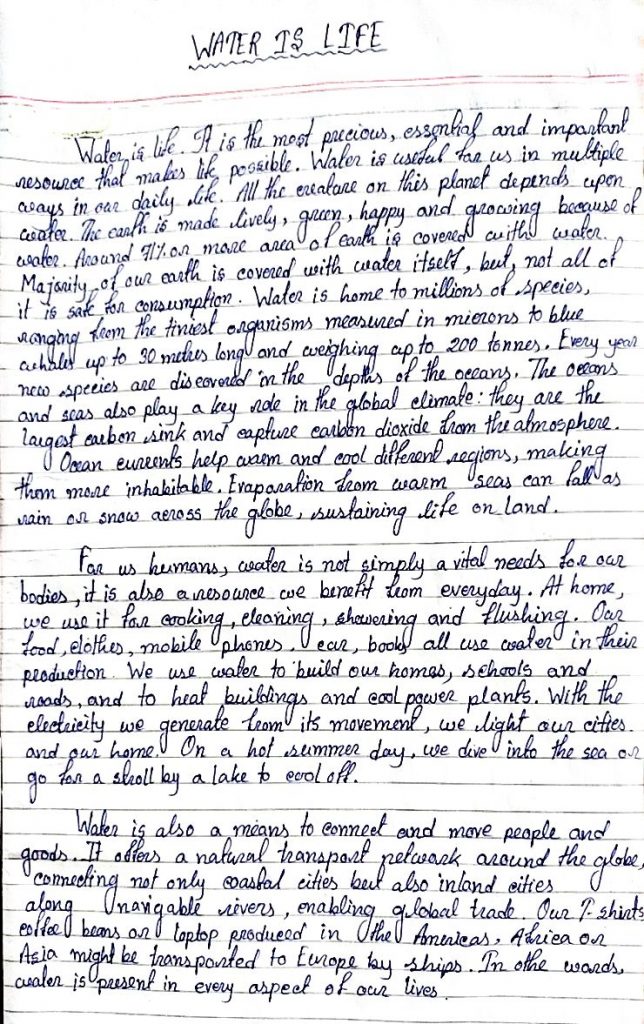 WATER IS LIFE
Water is life. It is the most precious, essential and important
resource that makes life possible. Water is useful for us in multiple
ways in our daily life. All the creature on this planet depends upon
water. The earth is made lively, green, happy and growing because of
water. Around 71% or more area of earth is covered with water.
Majority of our earth is covered with water itself, but, not all of
it is safe for consumption. Water is home to millions of species,
ranging from the tiniest organisms measured in microns to blue
whales up to 30 metres long and weighing up to 200 tonnes. Every year
new species are discovered in the depths of the oceans. The oceans
and seas also play a key role in the global climate: they are the
largest carbon sink and capture carbon dioxide from the atmosphere.
Ocean currents help warm and cool different regions, making
them more inhabitable. Evaporation from warm seas can fall as
rain or snow across the globe, sustaining life on land.
For us humans, water is not simply a vital needs for our
bodies, it is also a resource we benefit from everyday. At home,
we use it for cooking, cleaning, showering and flushing. Our
food, clothes, mobile phones, car, books all use water in their
production. We use water to build our homes, schools and
roads, and to heat buildings and cool power plants. With the
electricity we generate from its movement, we light our cities
and our home. On a hot summer day, we dive into the sea or
go for a stroll by a lake to cool off.
Water is also a means to connect and move people and
goods. It offers a natural transport network around the globe,
connecting not only coastal cities but also inland cities
along navigable rivers, enabling global trade. Our T-shirts
coffee beans or laptop produced in the Americas, Africa or
Asia might be transported to Europe by ships. In othe words,
water is present in every aspect of our lives.